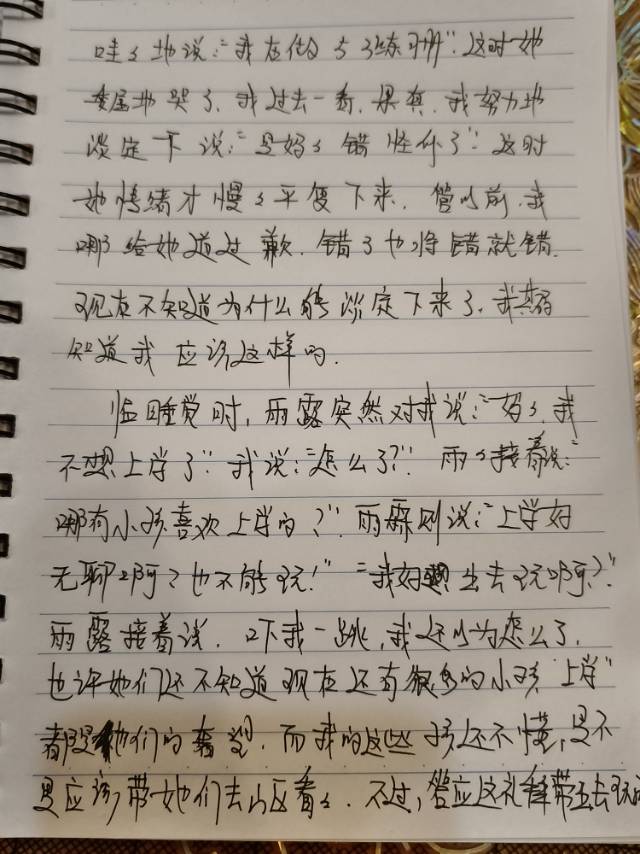 哇哇地说:"我在做与练习册".这时她
委屈地哭了.我过去一看,果真.我努力地
淡定下说:"是妈妈错怪你了".这时
她情绪才慢慢平复下来.管以前,我
哪了给她道过歉.错了也将错就错.
现在不知道为什么能淡定下来了.我
知道我应该这样的.
临睡觉时,雨露突然对我说:"妈妈,我
不想上学了".我说:"怎么了?".雨雨接着说:"
哪有小孩喜欢上学的?".雨霖则说:"上学好
无聊啊?也不能玩!""我好想出去玩啊?".
雨露接着说.吓我一跳,我还以为怎么了.
也许她们还不知道现在还有很多的小孩"上学"
都是他们的奢望.而我的这些孩还不懂,是不
是应该带她们去山区看看.不过,答应这礼拜带去玩